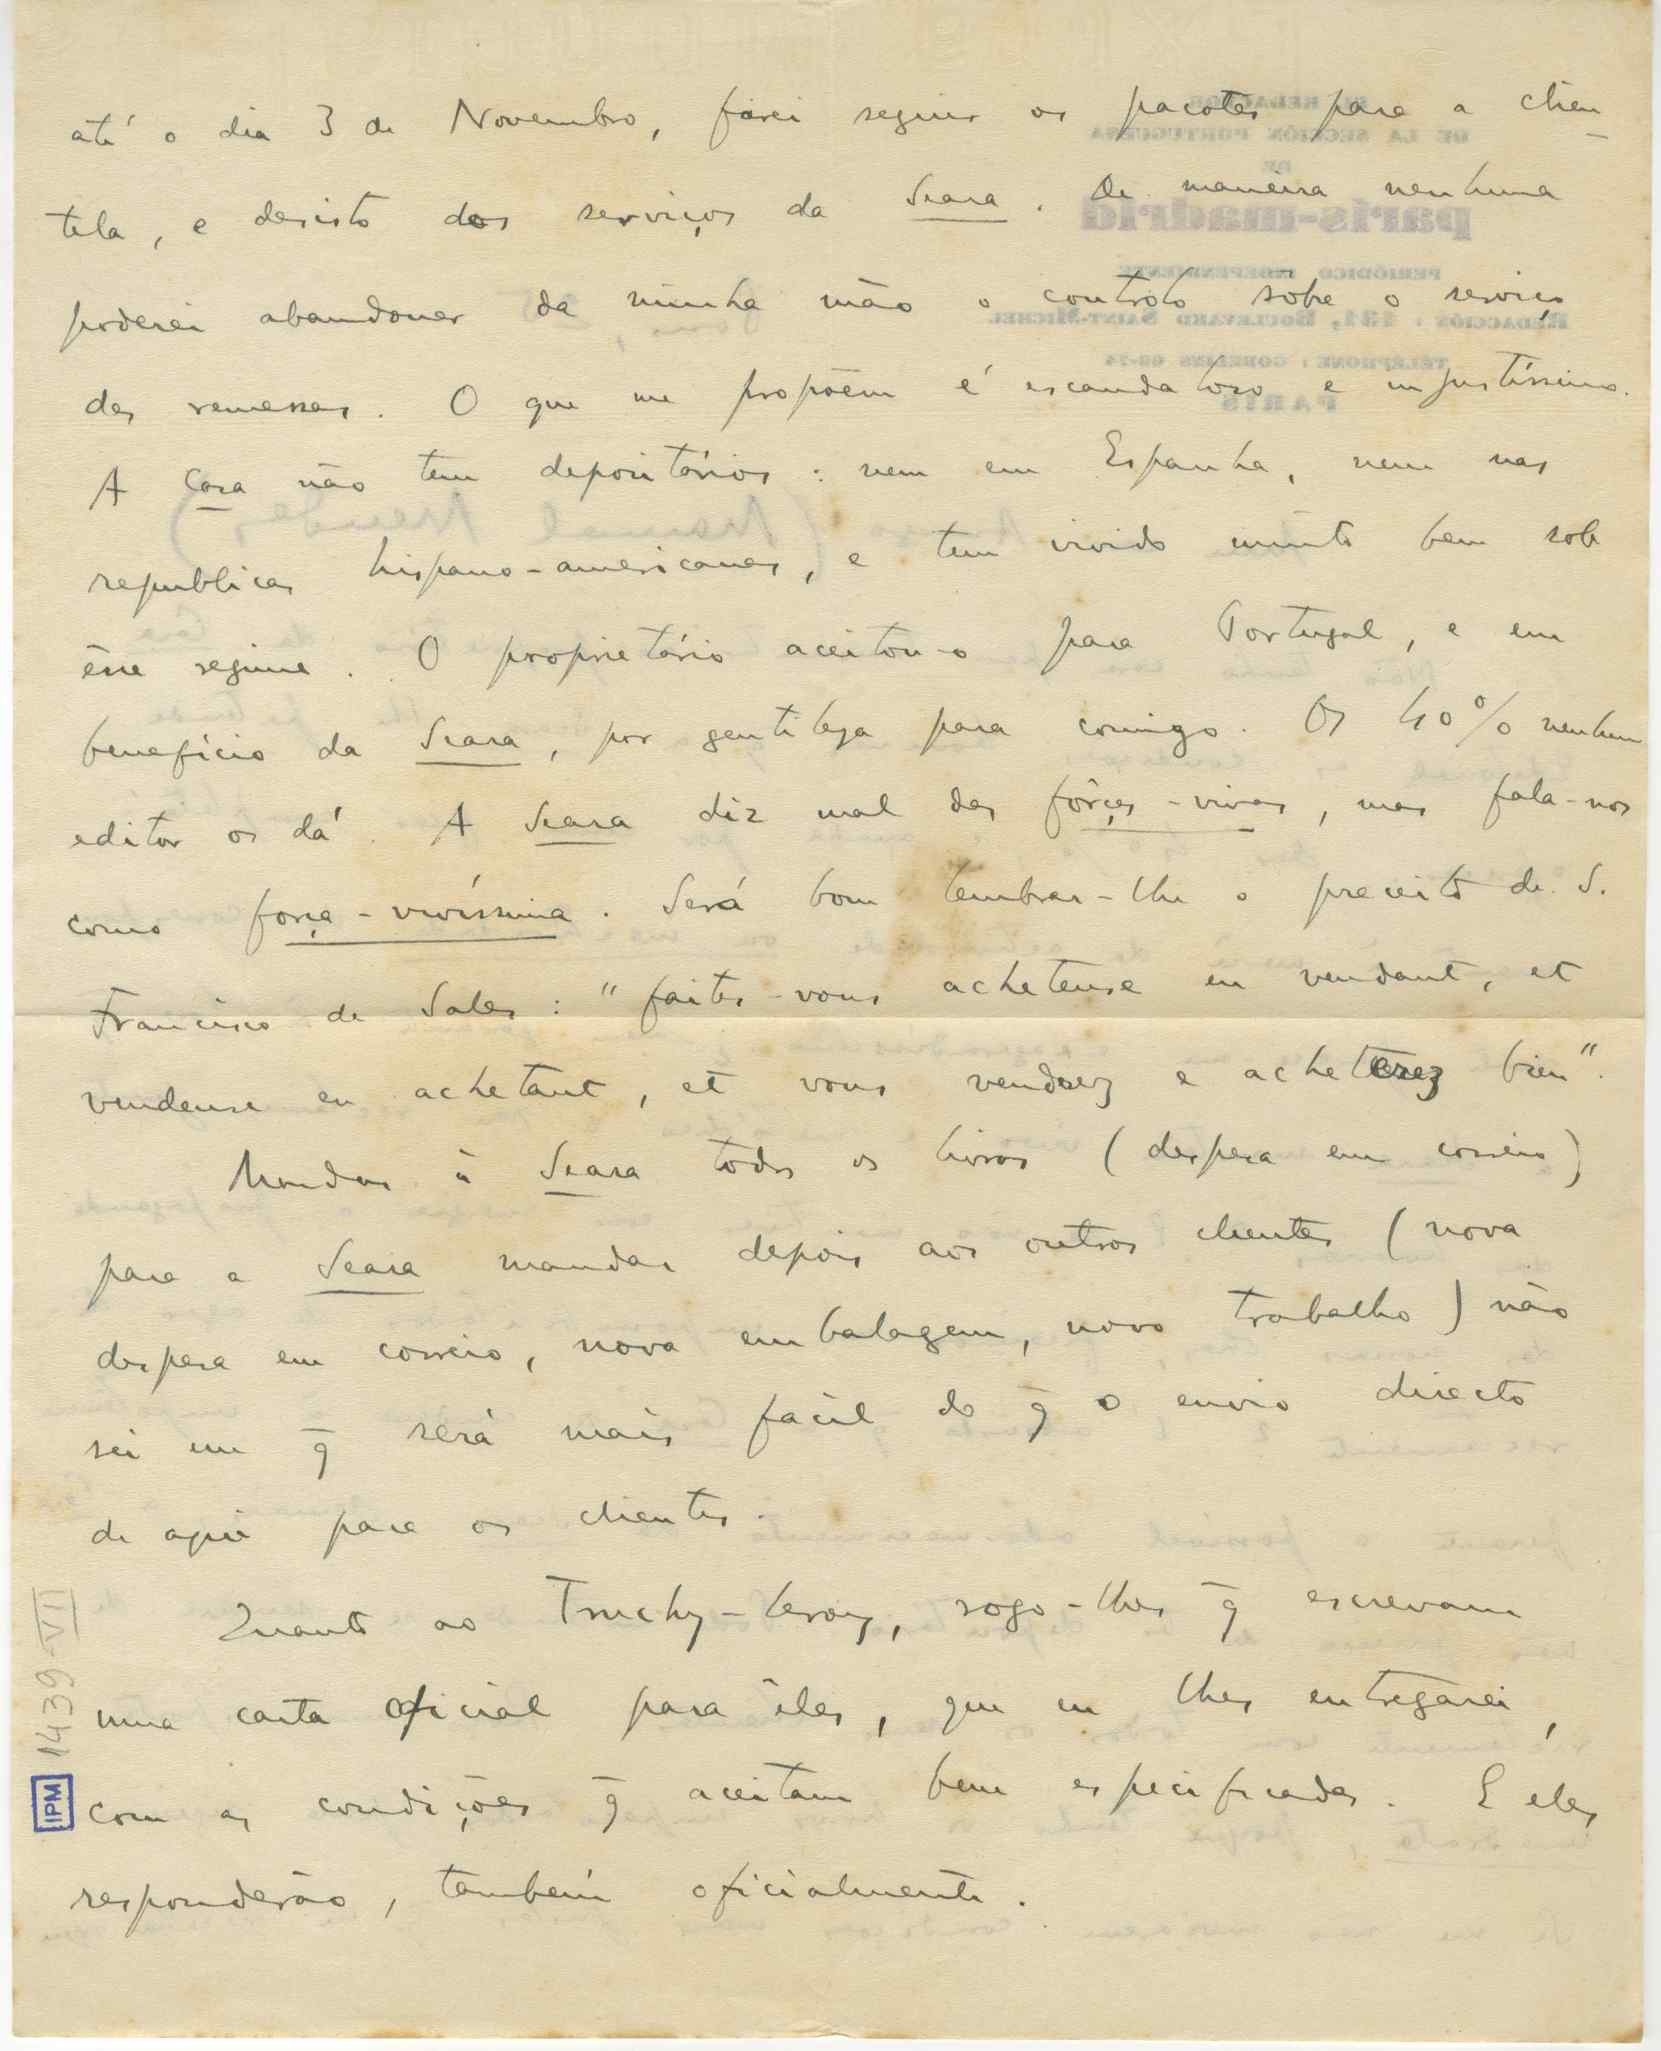 até o dia 3 de Novembro, farei seguir os pacotes para a clien-
tela, e desisto dos serviços da Seara. De maneira nenhuma
poderei abandonar da minha mão o controlo sobre o serviço
das remessas. O que me propõem é escandaloso e injustíssimo.
A Casa não tem depositários: nem em Espanha, nem nas
republicas hispano-americanas, e tem vivido muito bem sob
êsse regime. O proprietário aceitou-o para Portugal, e em
benefício da Seara, por gentileza para comigo. Os 40% nenhum
editor os dá. A Seara diz mal das fôrças-vivas, mas fala-nos
como força-vivíssima. Será bom lembrar-lhe o preceito de S.
Francisco de Sales: "faites-vous acheteuse en vendant, et
vendeuse en achetant, et vous vendrez e acheterez bien".
Mandar à Seara todos os livros (despesa em correio)
para a Seara mandar depois aos outros clientes (nova
despesa em correio, nova embalagem, novo trabalho) não
sei em q̄ será mais fácil do q̄ o envio directo
de aqui para os clientes.
Quanto ao Truchy-Leroy, rogo-lhes q̄ escrevam
uma carta oficial para êles, que eu lhes entregarei,
com as condições q̄ aceitam bem especificadas. E eles
responderão, também oficialmente.
IPM 1439-VII
SU REDACTOR
DE LA SECCIÓN PORTUGUESA
DE
paris-madrid
PERIÓDICO INDEPENDIENTE
REDACCIÓN : 131, BOULEVARD SAINT-MICHEL
TÉLÉPHONE : GOBELINS 09-74
PARIS